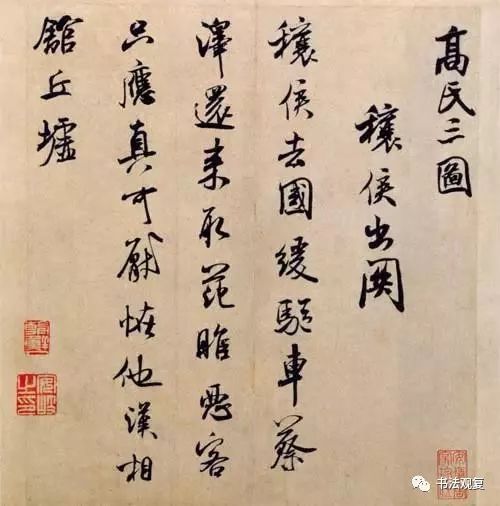 髙氏三圖
穰侯出関
穰侯去國緩驅車蔡
澤還来取范睢惡客
只應真可厭怪他漢相
舘丘墟
书法观复